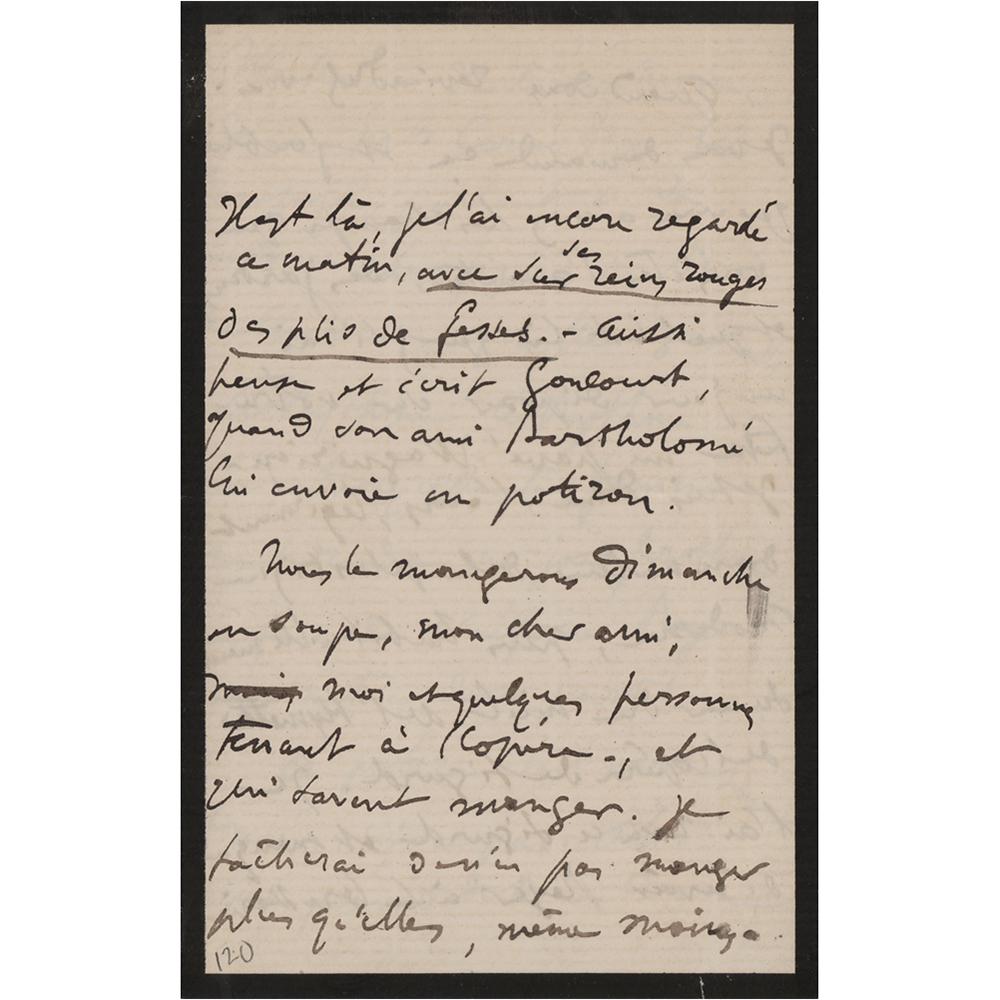 Il est là, je l'ai encore regardé
ce matin, avec ses reins rouges
des plis de fesses. - Aussi
pense et écrit Goncourt,
quand son ami Bartholomé
lui envoie un potiron.
Nous le mangerons dimanche
en soupe, mon cher ami,
mais moi et quelques personnes
tenant à l'opéra -, et
qui savent manger. Je
tâcherai de n'en pas manger
plus qu'elles, même moins.
120